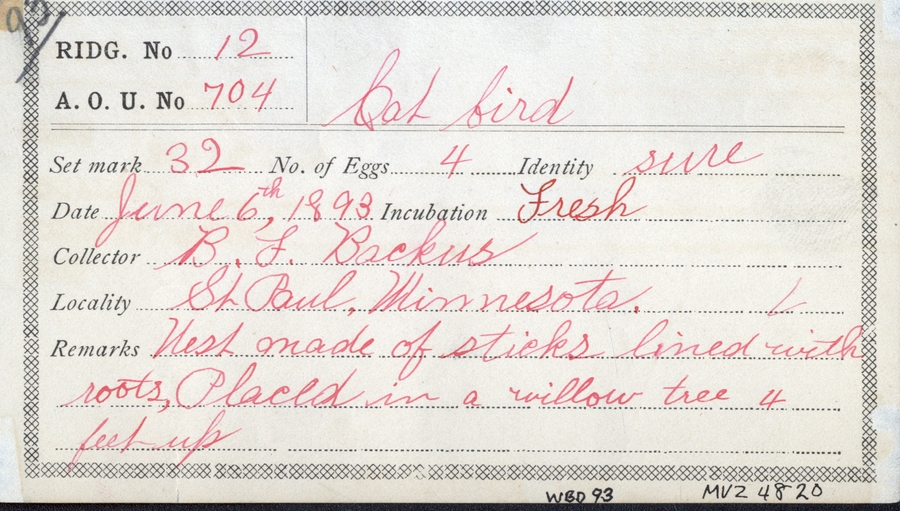 RIDG. No 12
A. O. U. No 704
Cat bird
Set mark 32 No. of Eggs 4 Identity sure
Date June 6th, 1893 Incubation Fresh
Collector B. F. Backus
Locality St Paul, Minnesota.
Remarks Nest made of sticks lined with
roots, Placed in a willow tree 4
feet up
WBD 93 MVZ 4820